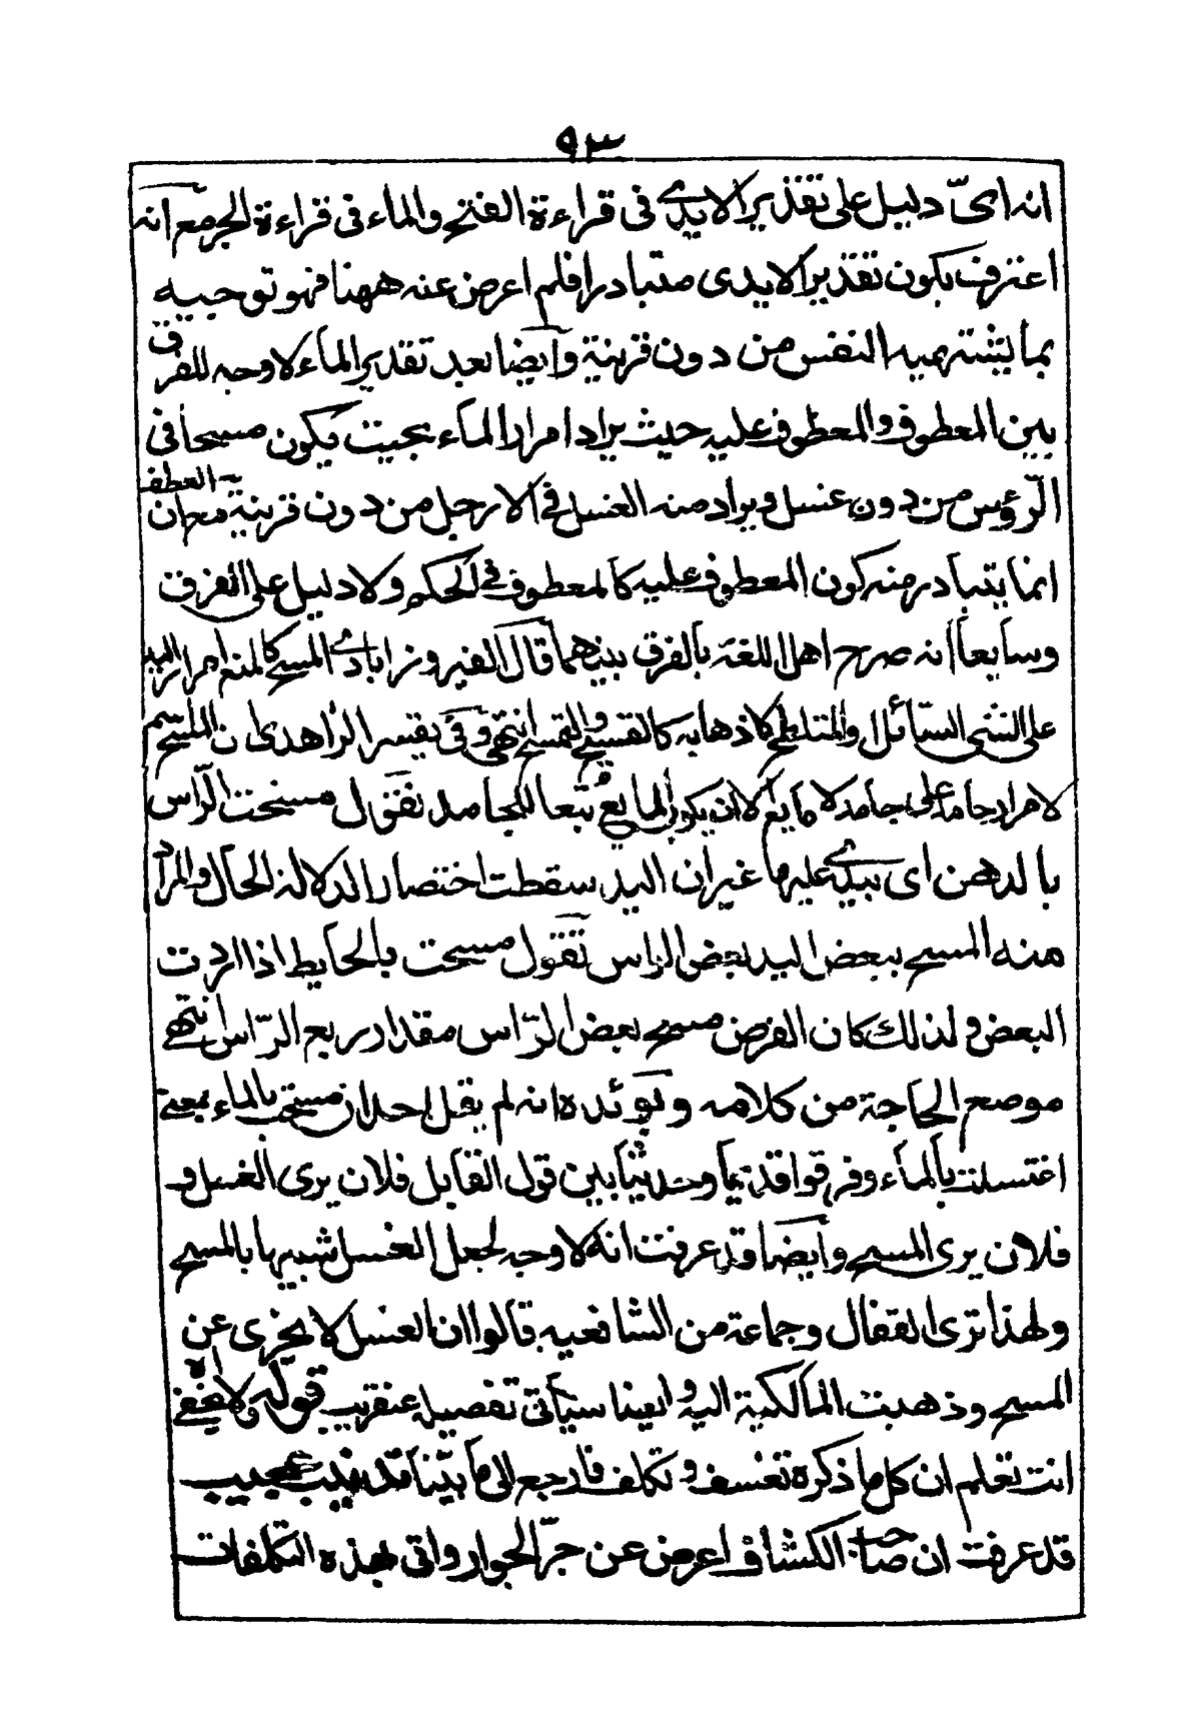 ٩٣
انه اىّ دليل على تقدير الايدي فى قراءة الفتح والماء فى قراءة الجر مع انه
اعترف بكون تقدير الايدى متبادرا فلم اعرض عنه ههنا فهو توجيه
بما يشتهيه النفس من دون قرينة وايضا بعد تقدير الماء لا وجه للفرق
بين المعطوف والمعطوف عليه حيث يراد امرار الماء بحيث يكون مسحا فى
الرّؤس من دون غسل ويراد منه الغسل فى الارجل من دون قرينة مع ان العطف
انما يتبادر منه كون المعطوف عليه كالمعطوف فى الحكم ولا دليل على الفرق
وسابعا انه صرح اهل اللغة بالفرق بينهما قال الفيروزابادي المسح كالمنع امرار اليد
على الشى السّائل والمتلطخ لاذهابه كالتمسيح والتمسح انتهى وفى تفسير الزاهدى ان المسح
لامرار جامد على جامد لا مايع الا ان يكون المايع تبعا للجامد تقول مسحت الرّاس
بالدهن اى بيدي عليها غير ان اليد سقطت اختصارا لدلالة الحال والمراد
منه المسح ببعض اليد بعض الراس تقول مسحت بالحايط اذا اردت
البعض ولذلك كان الفرض مسح بعض الرّاس مقدار ربع الرّاس انتهى
موضع الحاجة من كلامه ويؤيده انه لم يقل احد ان مسحت بالماء بمعنى
اغتسلت بالماء وفرقوا قديما وحديثا بين قول القايل فلان يرى الغسل و
فلان يرى المسح وايضا قد عرفت انه لا وجه لجعل الغسل شبيها بالمسح
ولهذا ترى القفال وجماعة من الشافعيه قالوا ان الغسل لا يجزى عن
المسح وذهبت المالكية اليه وايضا سيأتى تفصيله عنقريب قوله ولا يخفى اه
انت تعلم ان كل ما ذكره تعسف وتكلف فارجع الى ما بيّنا قد عجيب
قد عرفت ان صاحب الكشاف اعرض عن جرّ الجوار واتى بهذه التكلفات